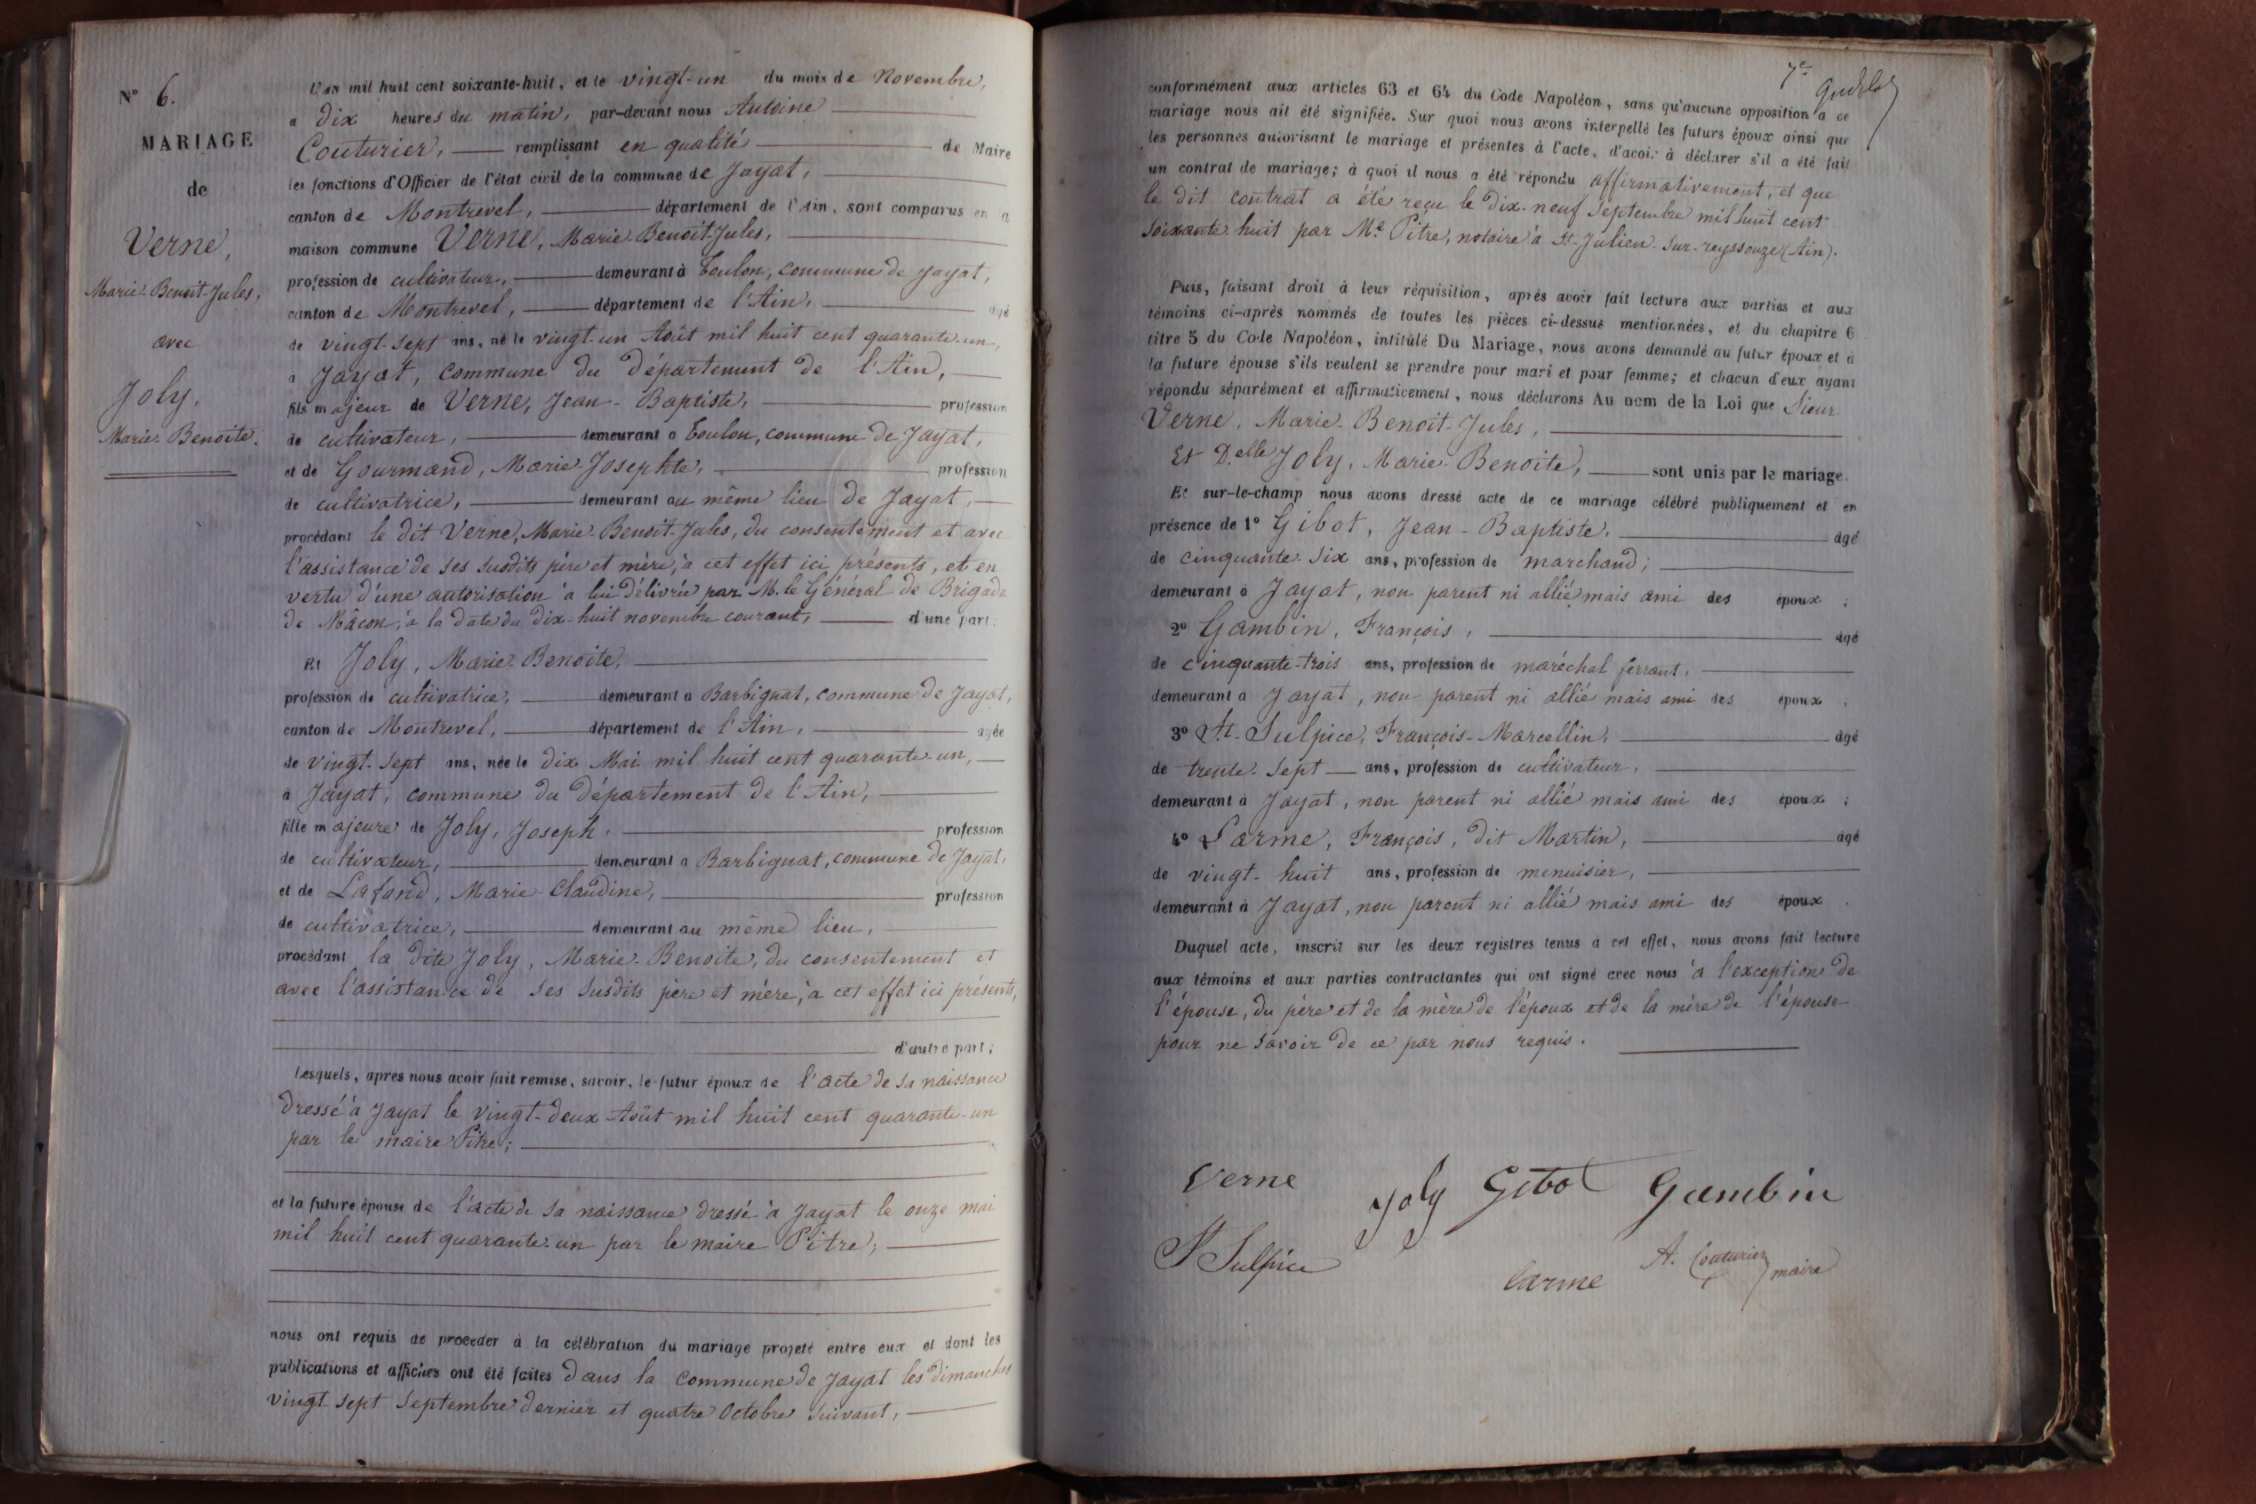 N° 6.
MARIAGE
de
Verne,
Marie-Benoit-Jules,
avec
Joly,
Marie-Benoite.
L'an mil huit cent soixante-huit, et le vingt-un du mois de Novembre,
a dix heures du matin, par-devant nous Antoine
Couturier, remplissant en qualité de Maire
les fonctions d'Officier de l'état civil de la commune de Jayat,
canton de Montrevel, département de l'Ain, sont comparus en a
maison commune Verne, Marie-Benoit-Jules,
profession de cultivateur, demeurant à Toulon, commune de Jayat,
canton de Montrevel, département de l'Ain, agé
de vingt-sept ans, né le vingt-un Août mil huit cent quarante-un,
a Jayat, commune du Département de l'Ain,
fils majeur de Verne, Jean-Baptiste, profession
de cultivateur, demeurant a Toulon, commune de Jayat,
et de Gourmand, Marie-Josephte, profession
de cultivatrice, demeurant au même lieu de Jayat,
procédant le dit Verne, Marie-Benoit-Jules, du consentement et avec
l'assistance de ses susdits père et mère, à cet effet ici présents, et en
vertu d'une autorisation à lui délivrée par M. le Général de Brigade
de Mâcon, à la date du dix-huit novembre courant, d'une part.
Et Joly, Marie-Benoite,
profession de cultivatrice, demeurant a Barbignat, commune de Jayat,
canton de Montrevel, département de l'Ain, agée
de vingt-sept ans, née le dix Mai mil huit cent quarante-un,
a Jayat, commune du Département de l'Ain,
fille majeure de Joly, Joseph, profession
de cultivateur, demeurant a Barbignat, commune de Jayat,
et de Lafond, Marie-Claudine, profession
de cultivatrice, demeurant au même lieu,
procédant la dite Joly, Marie-Benoite, du consentement et
avec l'assistance de ses susdits père et mère, à cet effet ici présents,
d'autre part;
Lesquels, après nous avoir fait remise, savoir, le futur époux de l'acte de sa naissance
dressé à Jayat le vingt-deux Août mil huit cent quarante-un
par le maire Pitre;
et la future épouse de l'acte de sa naissance dressé à Jayat le onze mai
mil huit cent quarante-un par le maire Pitre;
nous ont requis de procéder à la célébration du mariage projeté entre eux et dont les
publications et affiches ont été faites dans la commune de Jayat les dimanches
vingt-sept septembre dernier et quatre Octobre suivant,
7e
conformément aux articles 63 et 64 du Code Napoléon, sans qu'aucune opposition a ce
mariage nous ait été signifiée. Sur quoi nous avons interpellé les futurs époux ainsi que
les personnes autorisant le mariage et présentes à l'acte, d'avoir à déclarer s'il a été fait
un contrat de mariage; à quoi il nous a été répondu affirmativement, et que
le dit contrat a été reçu le dix-neuf Septembre mil huit cent
soixante-huit par Me Pitre, notaire à St-Julien-sur-reyssouze (Ain).
Puis, faisant droit à leur réquisition, après avoir fait lecture aux parties et aux
témoins ci-après nommés de toutes les pièces ci-dessus mentionnées, et du chapitre 6
titre 5 du Code Napoléon, intitulé Du Mariage, nous avons demandé au futur époux et à
la future épouse s'ils veulent se prendre pour mari et pour femme; et chacun d'eux ayant
répondu séparément et affirmativement, nous déclarons Au nom de la Loi que Sieur
Verne, Marie-Benoit-Jules,
Et D.elle Joly, Marie-Benoite, sont unis par le mariage.
Et sur-le-champ nous avons dressé acte de ce mariage célébré publiquement et en
présence de 1° Gibot, Jean-Baptiste, agé
de cinquante-six ans, profession de marchand;
demeurant à Jayat, non parent ni allié mais ami des époux;
2° Gambin, François, agé
de cinquante-trois ans, profession de maréchal ferrant,
demeurant à Jayat, non parent ni allié mais ami des époux.
3° St-Sulpice, François-Marcellin, agé
de trente-sept ans, profession de cultivateur,
demeurant à Jayat, non parent ni allié mais ami des époux;
4° Larme, François, dit Martin, agé
de vingt-huit ans, profession de menuisier,
demeurant à Jayat, non parent ni allié mais ami des époux.
Duquel acte, inscrit sur les deux registres tenus à cet effet, nous avons fait lecture
aux témoins et aux parties contractantes qui ont signé avec nous à l'exception de
l'épouse, du père et de la mère de l'époux et de la mère de l'épouse
pour ne savoir de ce par nous requis.
Verne Joly Gibot Gambin
St Sulpice Larme A. Couturier maire